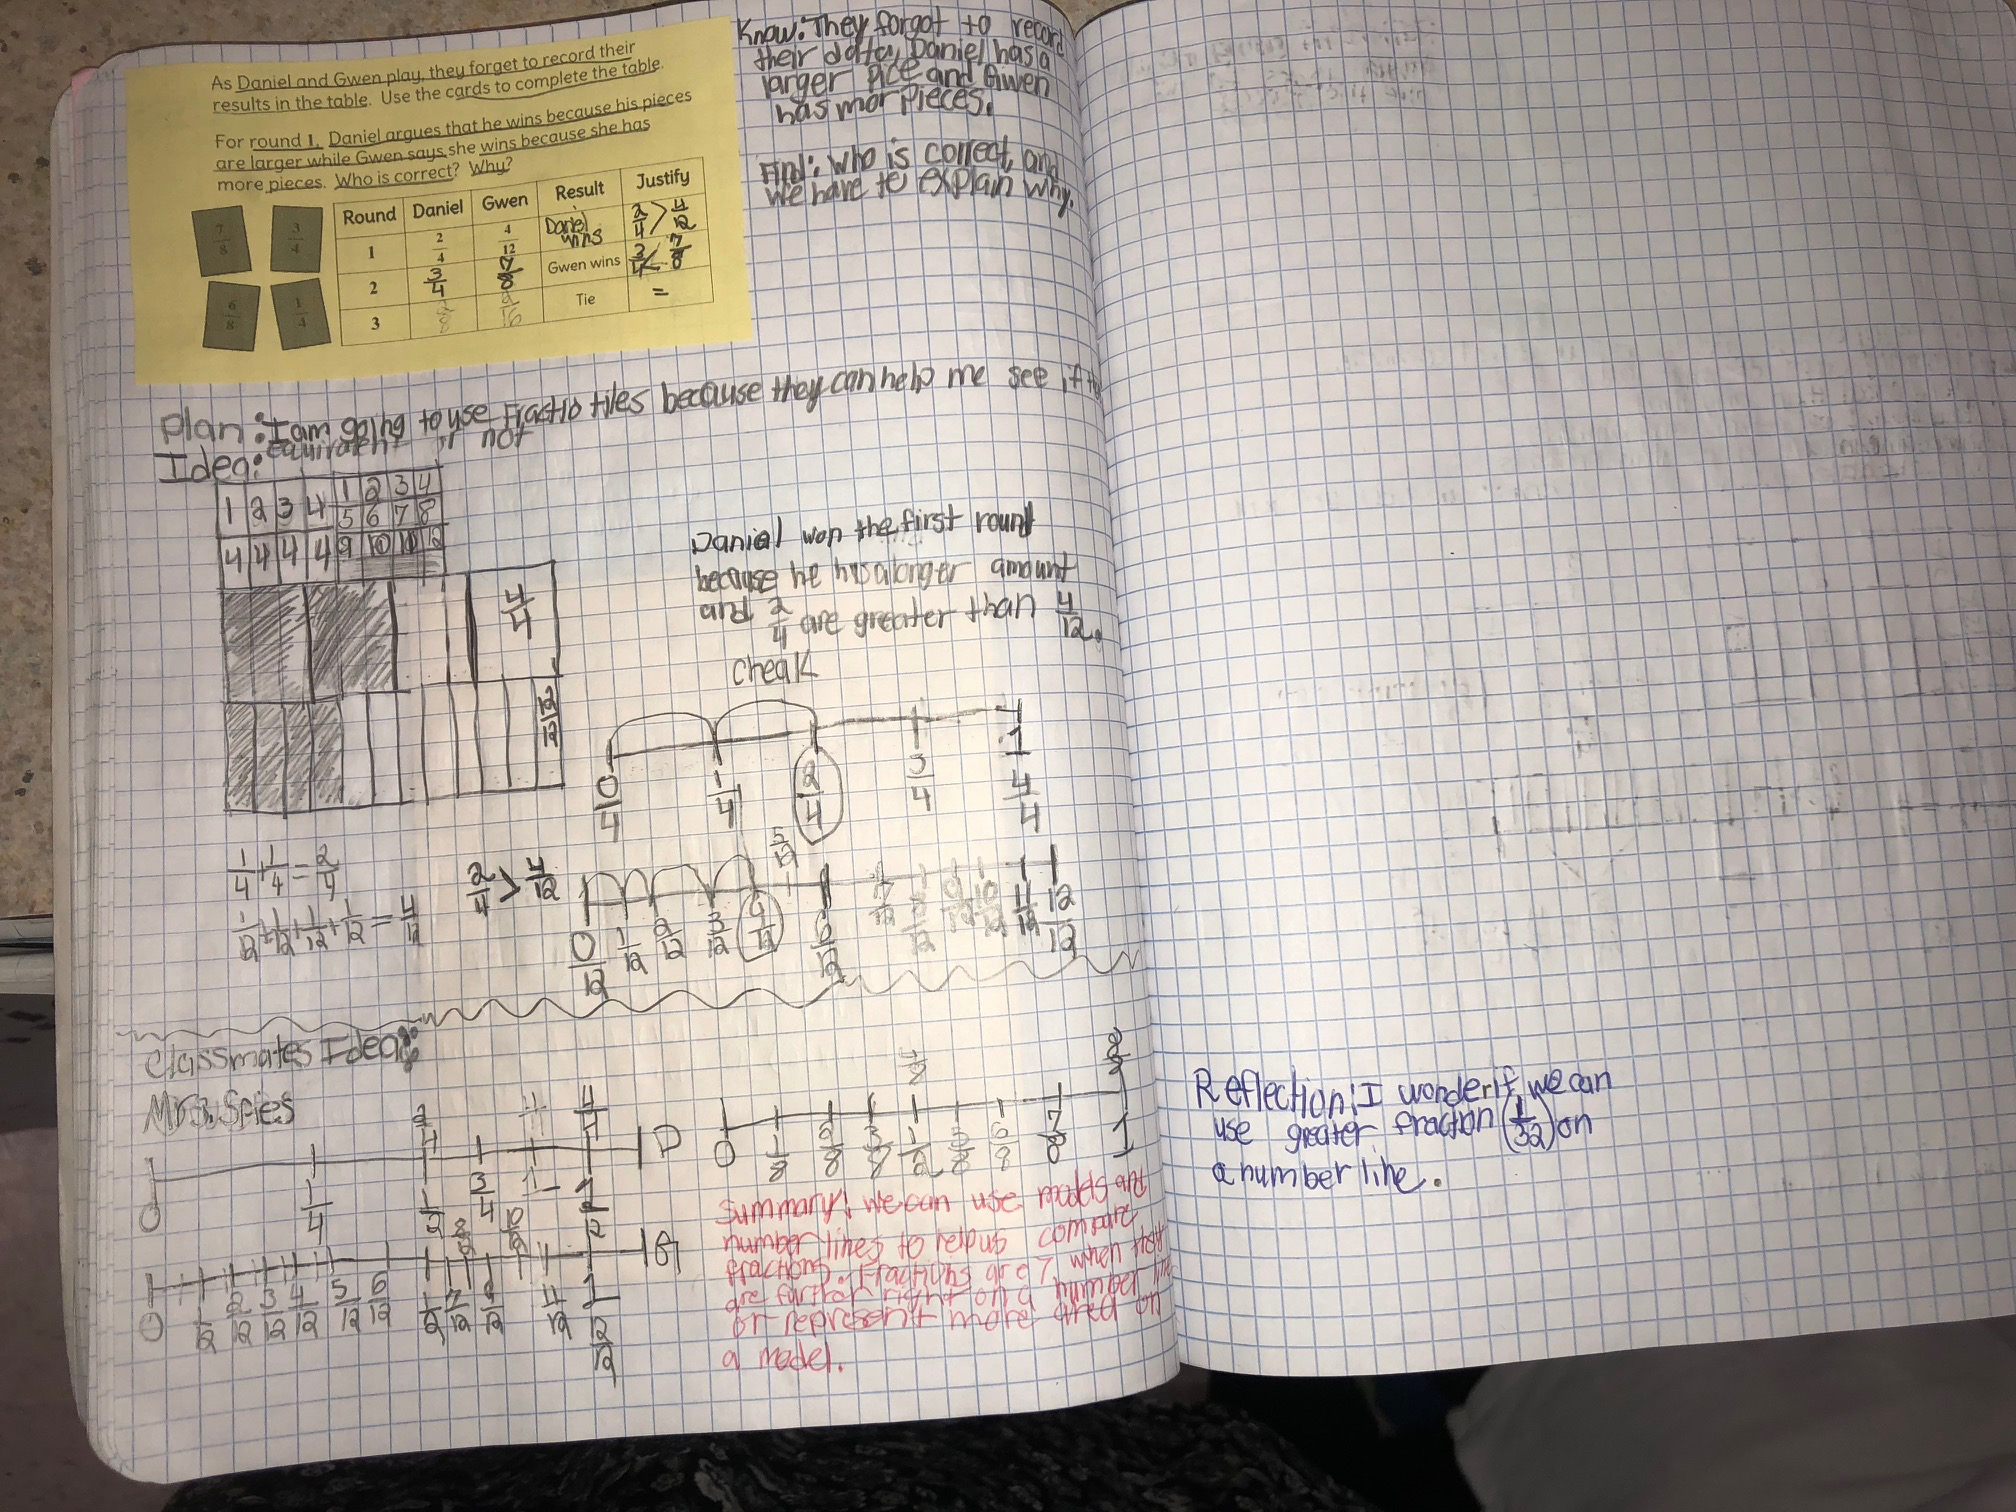 As Daniel and Gwen play, they forget to record their
results in the table. Use the cards to complete the table.
For round 1, Daniel argues that he wins because his pieces
are larger while Gwen says she wins because she has
more pieces. Who is correct? Why?
7/8 3/4
6/8 1/4
Round Daniel Gwen Result Justify
1 2/4 4/12 Daniel wins 2/4 > 4/12
2 3/4 7/8 Gwen wins 3/4 < 7/8
3 Tie =
Know: They forgot to record
their data, Daniel has a
larger Pice and Gwen
has mor Pieces.
Find: Who is correct, and
we have to explain why.
Plan: I am going to use Fractio tiles because they can help me see if
equivalent or not
Idea:
1 2 3 4 1 2 3 4
5 6 7 8
4 4 4 4 9 10 11 12
4/4
12/12
Daniel won the first round
because he has a larger amount
and 2/4 are greater than 4/12.
cheak
0/4 1/4 2/4 3/4 4/4
1
1/4 + 1/4 = 2/4
1/12 + 1/12 + 1/12 + 1/12 = 4/12
2/4 > 4/12
5/12
0/12 1/12 2/12 3/12 4/12 6/12 7/12 8/12 9/12 10/12 11/12 12/12
Classmates Idea:
Mrs. Spies
2/4 4/4
D
0 1/4 1/2 3/4
G
0 1/12 2/12 3/12 4/12 5/12 6/12 1/2 7/12 8/12 9/12 10/12 11/12 1 12/12
4/8 8/8
0 1/8 2/8 3/8 1/2 5/8 6/8 7/8 1
Summary: we can use models and
number lines to help us compare
fractions. Fractions are > when that
are further right on a number line
or represent more area on
a model.
Reflection: I wonder if we can
use greater fraction (1/32) on
a number line.